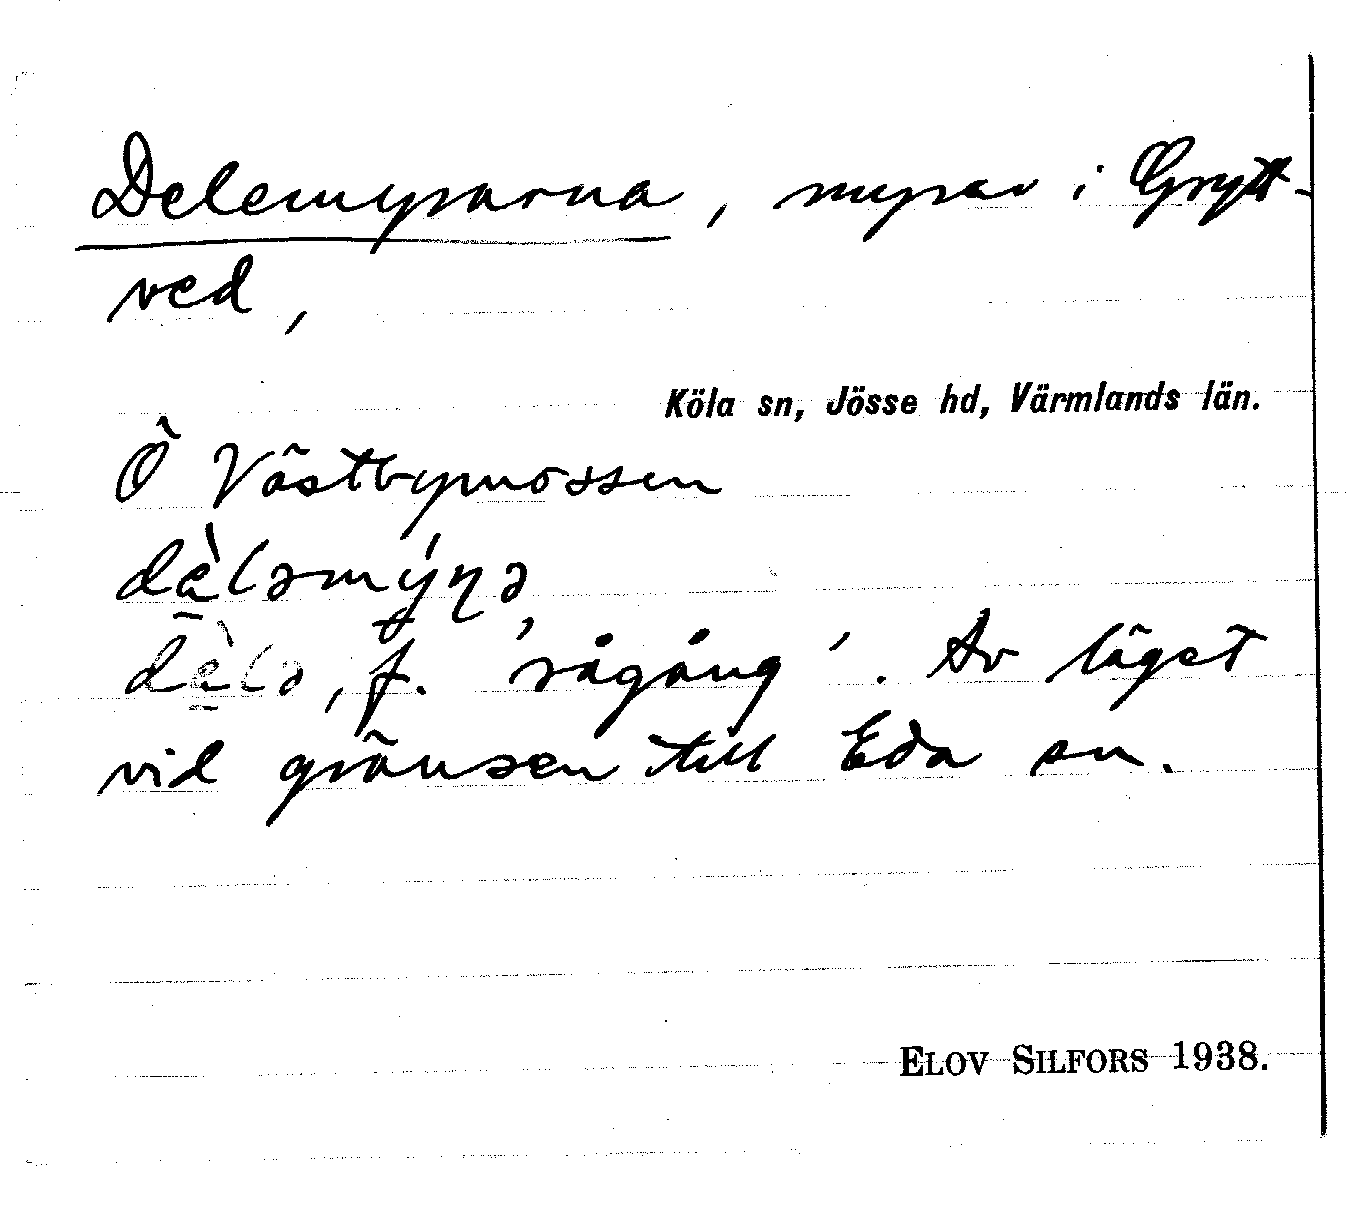 Delemyrarna, myrar i Grytt-
ved,
Köla sn, Jösse hd, Värmlands län.
Ö Västbymossen
dèləmýɳə
dèlə, f. 'rågång'. Av läget
vid gränsen till Eda sn.
ELOV SILFORS 1938.